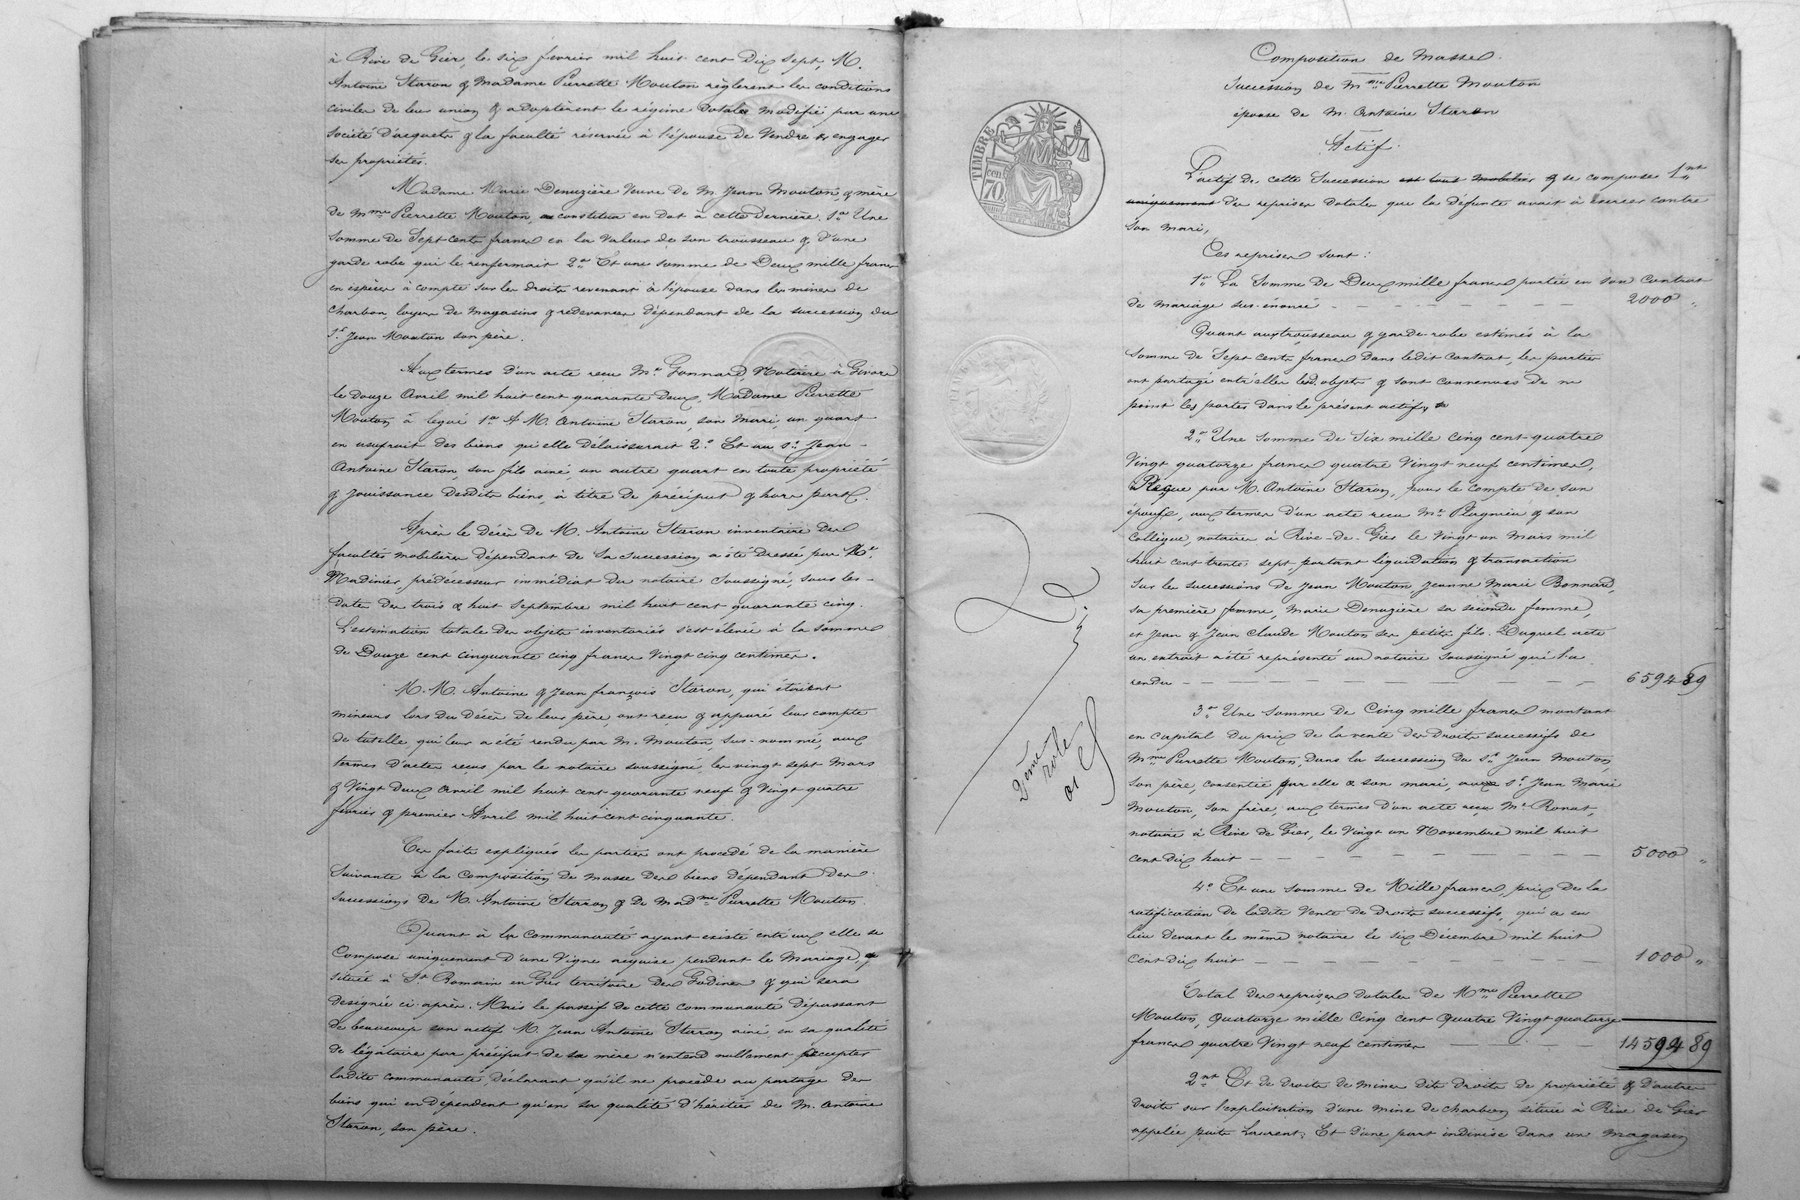 à Rive de Gier, le six fevrier mil huit cent dix sept, M.
Antoine Staron & Madame Pierrette Mouton règlerent les conditions
civiles de leur union & adoptèrent le régime dotal modifié par une
société d'acquets & la faculté réservée à l'épouse de vendre & engager
ses propriétés.
Madame Marie Denuzière veuve de M. Jean Mouton, & mère
de Mme Pierrette Mouton, constitua en dot à cette dernière. 1° Une
somme de Sept cents francs en la valeur de son trousseau & d'une
garde robe qui le renfermait 2° Et une somme de Deux mille francs
en espèces à compte sur les droits revenant à l'épouse dans les mines de
charbon, loyers de magasins & redevances dépendant de la succession du
Sr. Jean Mouton son père.
Aux termes d'un acte reçu Me. Gonnard, Notaire à Givors
le douze Avril mil huit cent quarante deux, Madame Pierrette
Mouton à legué 1° A M. Antoine Staron, son mari, un quart
en usufruit des biens qu'elle délaisserait 2° Et au Sr. Jean -
Antoine Staron, son fils ainé, un autre quart en toute propriété
& jouissance desdits biens, à titre de préciput & hors part.
Après le décès de M. Antoine Staron inventaire des
facultés mobilières dépendant de sa succession a été dressé par Me.
Madinier prédécesseur immédiat du notaire soussigné, sous les -
dates des trois & huit Septembre mil huit cent quarante cinq.
L'estimation totale des objets inventoriés s'est élevée à la somme
de Douze cent cinquante cinq francs vingt cinq centimes.
M. M. Antoine & Jean françois Staron, qui étaient
mineurs lors du décès de leur père, ont reçu & appuré leur compte
de tutelle qui leur a été rendu par M. Mouton, sus-nommé, aux
termes d'actes reçus par le notaire soussigné, les vingt sept Mars
& vingt deux Avril mil huit cent quarante neuf & vingt quatre
février & premier Avril mil huit cent cinquante.
Ces faits expliqués les parties ont procédé de la manière
suivante à la composition de masse des biens dépendant des
successions de M. Antoine Staron & de Madme Pierrette Mouton.
Quant à la communauté ayant existé entr'eux elle se
compose uniquement d'une vigne acquise pendant le Mariage, &
située à St. Romain en Gier territoire des Godines & qui sera
designée ci-après. Mais le passif de cette communauté dépassant
de beaucoup son actif M. Jean Antoine Staron ainé, en sa qualité
de légataire par préciput de sa mère n'entend nullement accepter
ladite communauté, déclarant qu'il ne procède au partage des
biens qui en dépendent qu'en sa qualité d'héritier de M. Antoine
Staron, son père.
TIMBRE
70
2ème
role
Composition de Masse.
Succession de Mme Pierrette Mouton
épouse de M. Antoine Staron
Actif.
L'actif de cette Succession est tout mobilier & se compose 1ent
uniquement des reprises dotales que la défunte avait à exercer contre
son mari,
Ces reprises sont :
1° La Somme de Deux mille francs portée en son Contrat
de mariage sus-énoncé 2000 "
Quant aux trousseau & garde-robe estimés à la
somme de Sept cents francs dans ledit contrat, les parties
ont partagé entr'elles lesd. objets & sont convenues de ne
point les porter dans le présent actif.
2° Une somme de Six mille cinq cent quatre
vingt quatorze francs quatre vingt neuf centimes,
Reçue par M. Antoine Staron, pour le compte de son
épouse, aux termes d'un acte reçu Me. & son
Collègue, notaires à Rive-de-Gier le vingt un Mars mil
huit cent trente sept, portant liquidation & transaction
sur les successions de Jean Mouton, Jeanne Marie Bonnard,
sa première femme, Marie Denuzière sa seconde femme,
et Jean & Jean Claude Mouton ses petits-fils. Duquel acte
un extrait a été représenté au notaire soussigné qui l'a
rendu 6594 89
3° Une somme de Cinq mille francs montant
en capital du prix de la vente des droits successifs de
Mme Pierrette Mouton, dans la succession du Sr. Jean Mouton,
son père, consentie par elle & son mari, au Sr. Jean Marie
Mouton, son frère, aux termes d'un acte reçu Me. Ronat,
notaire à Rive de Gier, le vingt un Novembre mil huit
cent dix huit 5000 "
4° Et une somme de Mille francs, prix de la
ratification de ladite vente de droits successifs, qui a eu
lieu devant le même notaire le six Décembre mil huit
cent dix huit 1000 "
Total des reprises dotales de Mme Pierrette
Mouton, Quatorze mille Cinq cent Quatre vingt quatorze
francs quatre vingt neuf centimes 14594 89
2ent Et de droits de mines dits droits de propriété & d'autres
droits sur l'exploitation d'une mine de charbon située à Rive de Gier
appelée puits Laurent. Et d'une part indivise dans un magasin